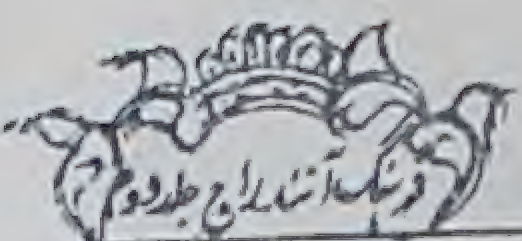 فرہنگ آنند راج جلد دوم